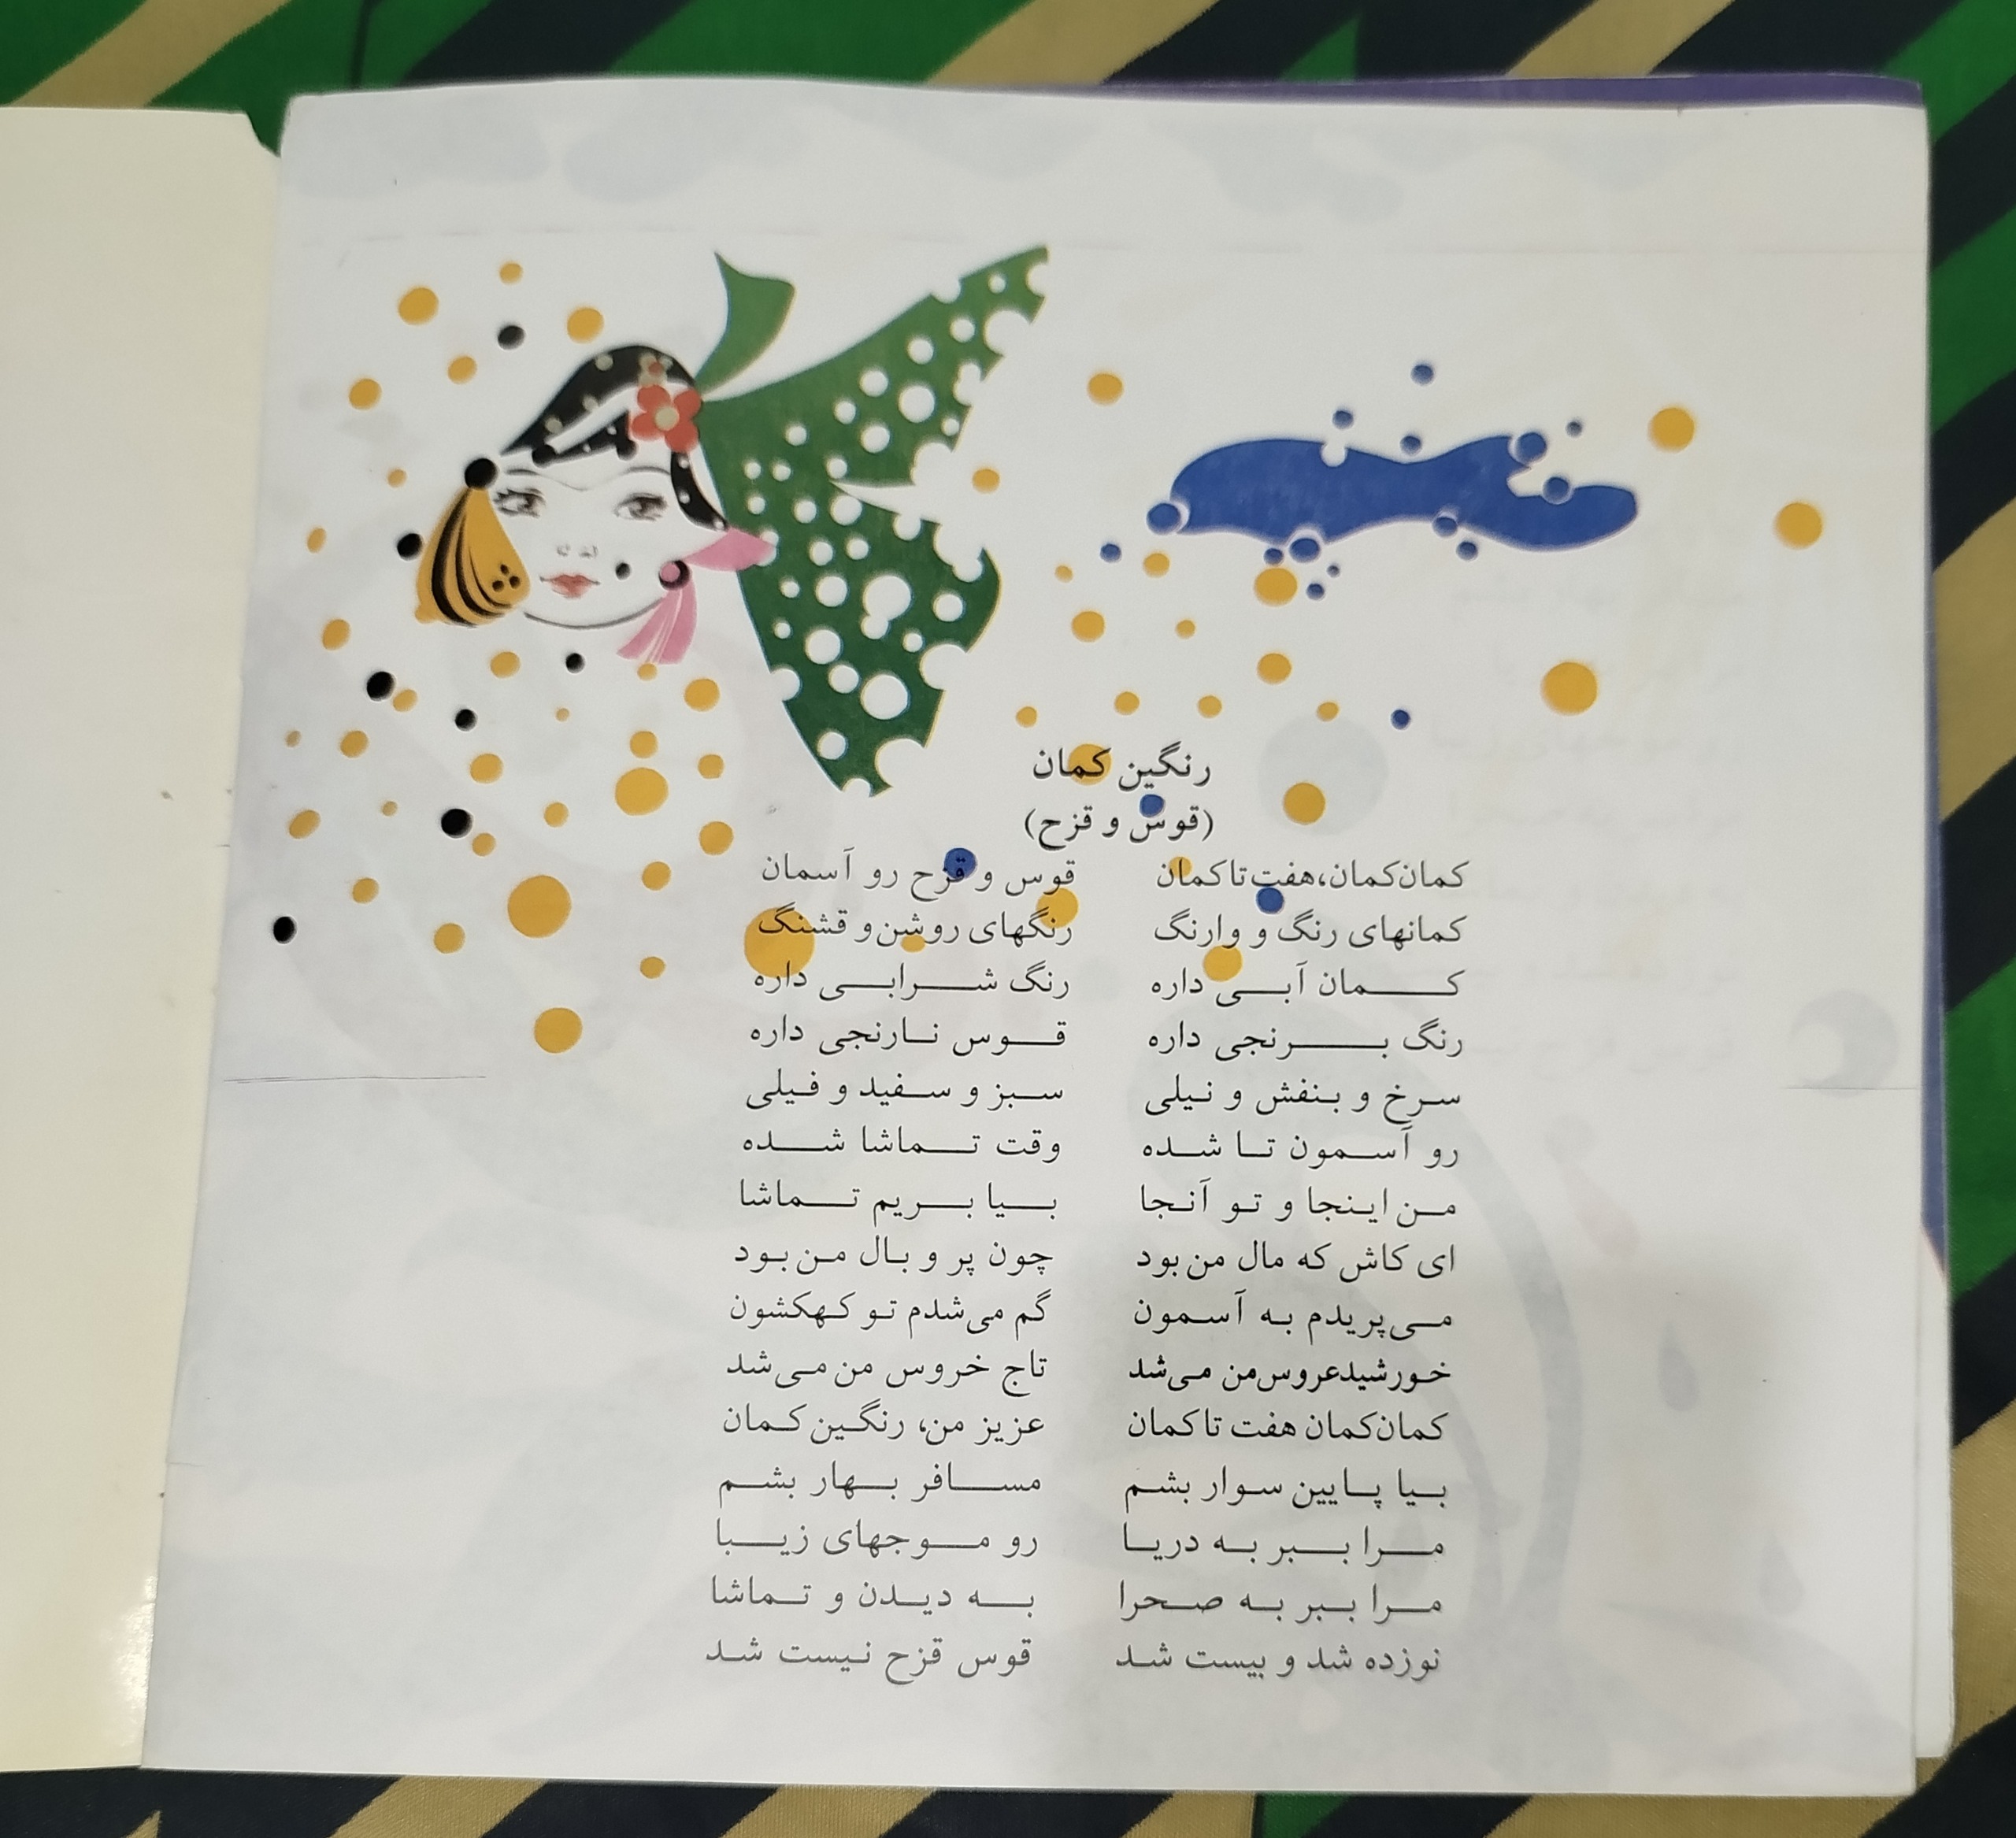 رنگین کمان
(قوس و قزح)
کمان‌کمان،هفت‌تاکمان قوس و قزح رو آسمان
کمانهای رنگ و وارنگ رنگهای روشن و قشنگ
کمان آبی داره رنگ شرابی داره
رنگ برنجی داره قوس نارنجی داره
سرخ و بنفش و نیلی سبز و سفید و فیلی
رو آسمون تا شده وقت تماشا شده
من اینجا و تو آنجا بیا بریم تماشا
ای کاش که مال من بود چون پر و بال من بود
می‌پریدم به آسمون گم می‌شدم تو کهکشون
خورشیدعروس‌من می‌شد تاج خروس من می‌شد
کمان‌کمان هفت تاکمان عزیز من، رنگین‌کمان
بیا پایین سوار بشم مسافر بهار بشم
مرا ببر به دریا رو موجهای زیبا
مرا ببر به صحرا به دیدن و تماشا
نوزده شد و بیست شد قوس قزح نیست شد